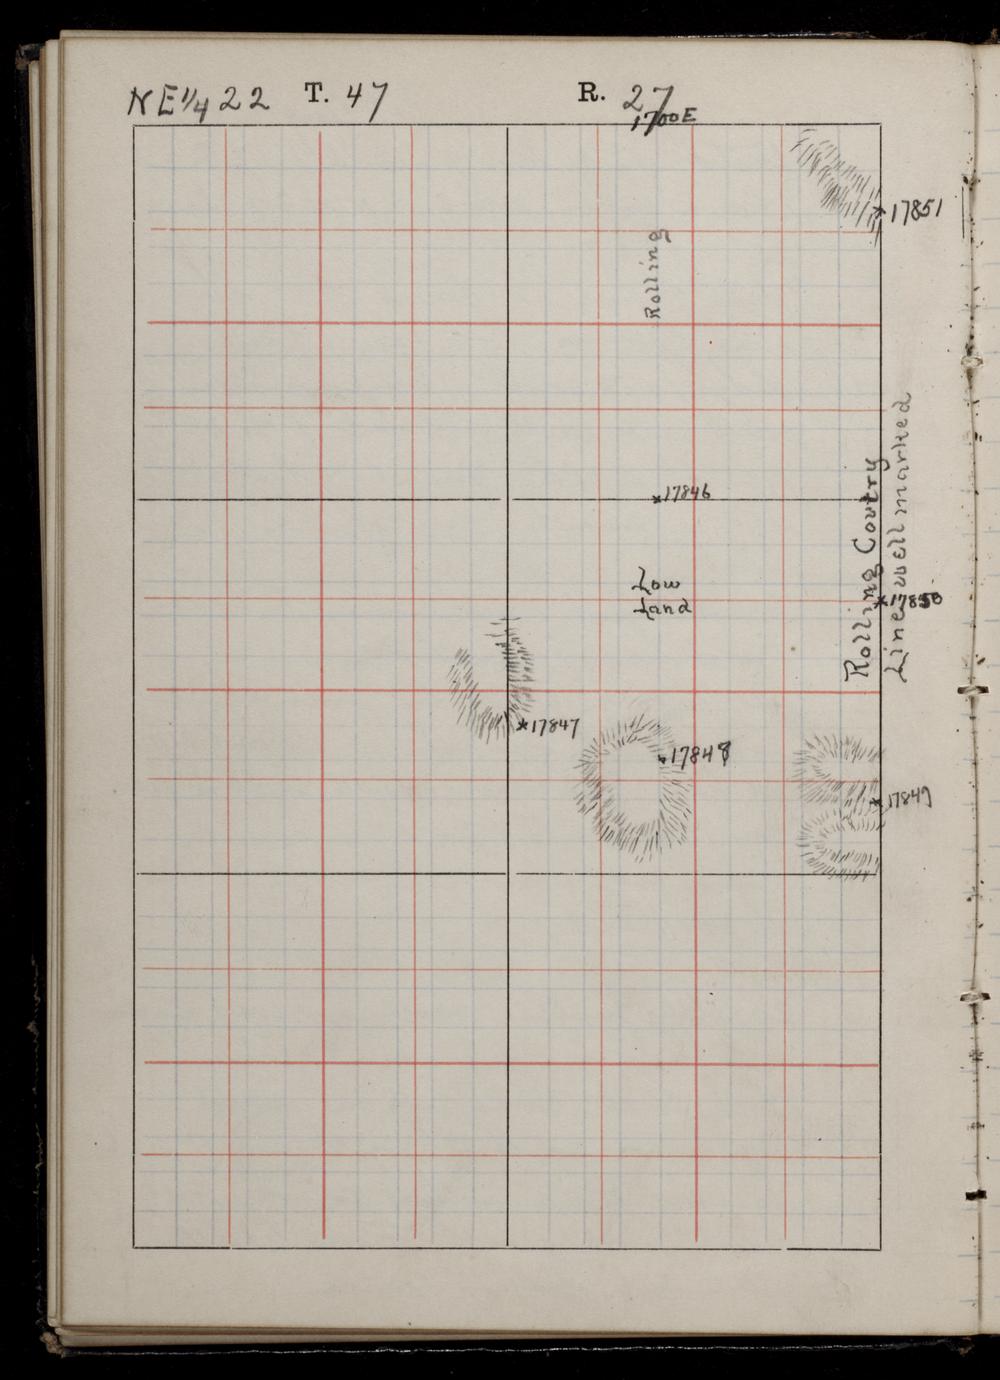 NE¼ 22 T. 47 R. 27
1700E
17851
Rolling
17846
Rolling Coutry
Line well marked
Low
Land
17850
17847
17848
17849